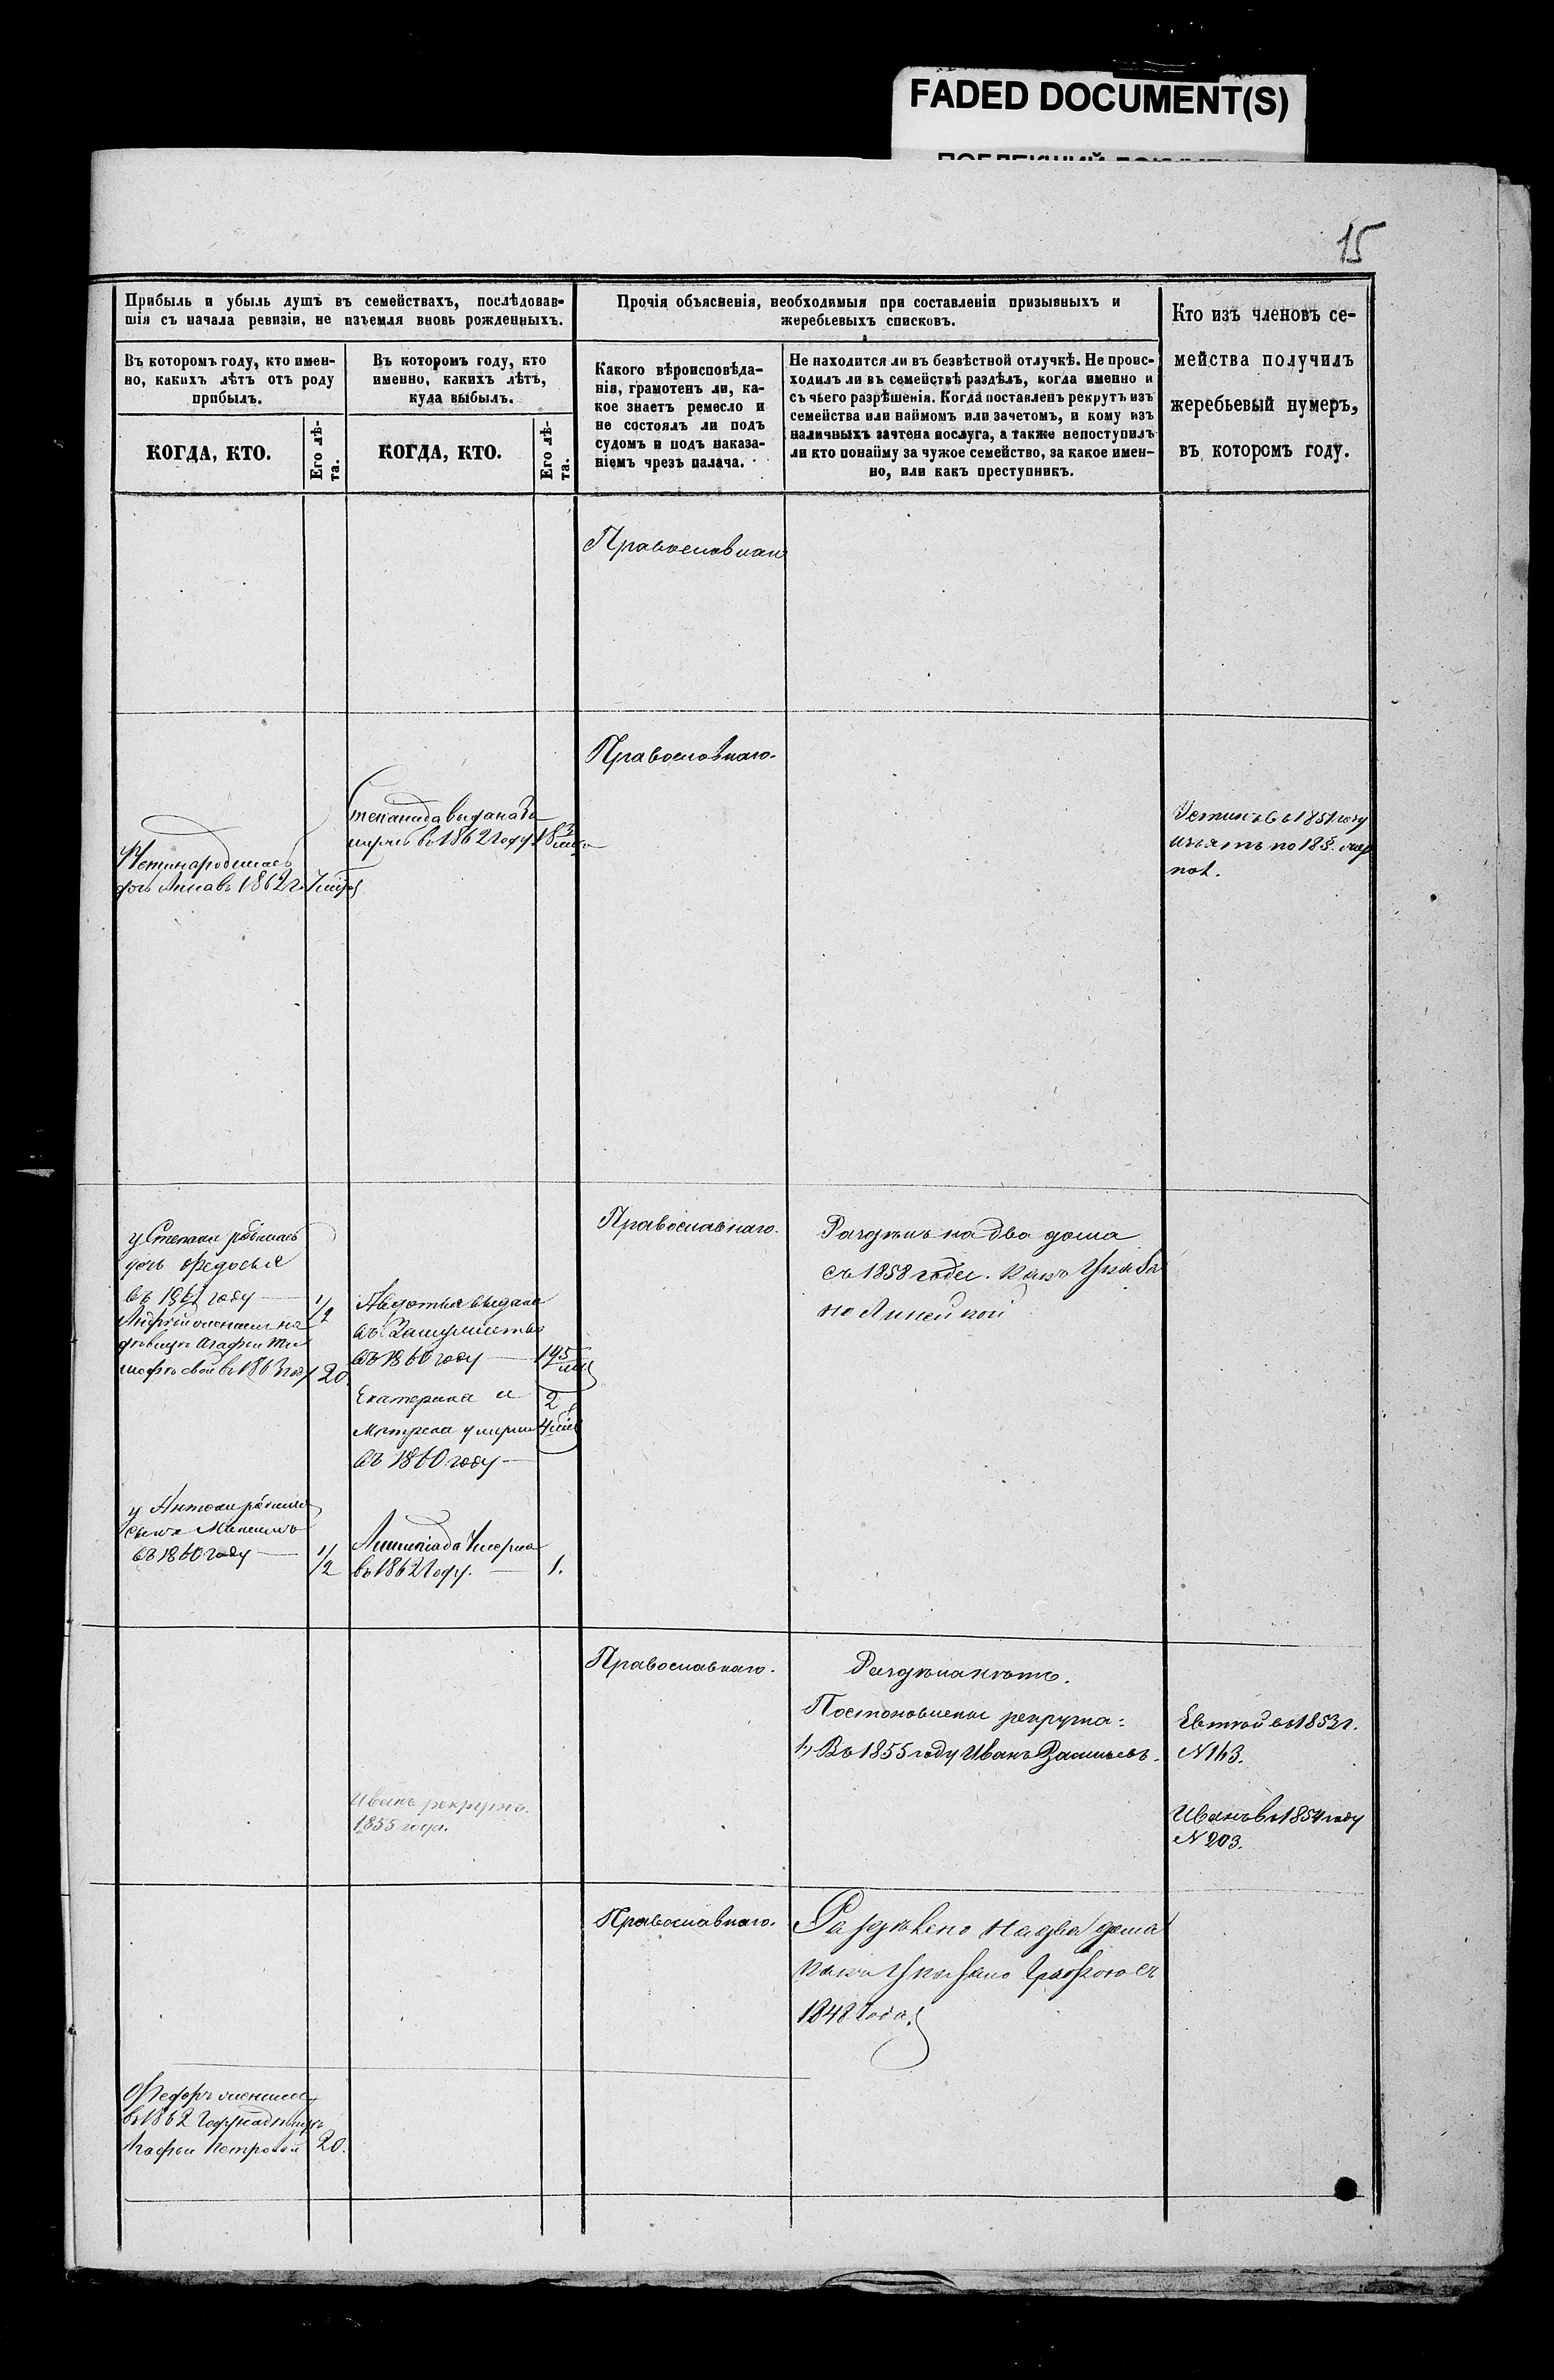 FADED DOCUMENT(S)
15
Прибыль и убыль душъ въ семействахъ, послѣдовав-
шія съ начала ревизіи, не изъемля вновь рожденныхъ.
Въ которомъ году, кто имен-
но, какихъ лѣтъ отъ роду
прибылъ.
Въ которомъ году, кто
именно, какихъ лѣтъ,
куда выбылъ.
КОГДА, КТО.
Его лѣ-
та.
КОГДА, КТО.
Его лѣ-
та.
Прочія объясненія, необходимыя при составленіи призывныхъ и
жеребьевыхъ списковъ.
Какого вѣроисповѣда-
нія, грамотенъ ли, ка-
кое знаетъ ремесло и
не состоялъ ли подъ
судомъ и подъ наказа-
ніемъ чрезъ палача.
Не находится ли въ безвѣстной отлучкѣ. Не проис-
ходилъ ли въ семействѣ раздѣлъ, когда именно и
съ чьего разрѣшенія. Когда поставленъ рекрутъ изъ
семейства или наймомъ или зачетомъ, и кому изъ
наличныхъ зачтена послуга, а также непоступилъ
ли кто понайму за чужое семейство, за какое имен-
но, или какъ преступникъ.
Кто изъ членовъ се-
мейства получилъ
жеребьевый нумеръ,
въ которомъ году.
Православнаго
Православнаго.
Степанида выдана За
въ 1862 году 18
родилась
дочь Анна въ 1862 г.
въ 1851 году
изъятъ по
Православнаго.
у Степана родилась
дочь Федосья
въ 1861 году — 1/2
Андрей женился на
дѣвицѣ Агафьи Ти
мофѣевой въ 1863 году 20.
Авдотья выдана
въ Замужство
въ 1860 году —
Екатерина и 2
Матрена умерли
въ 1860 году —
Раздѣлъ на два дома
съ 1858 года. Какъ Указа
но Линейкой
у Антона родился
сынъ
въ 1860 году — 1/2
Умерла
въ 1862 Году. — 1.
Православнаго.
Раздѣла нѣтъ.
Постановлены рекрута:
1, Въ 1855 году Иванъ Васильевъ.
Евтѣй въ 1853 г.
N 143.
Иванъ рекрутъ.
1855 года.
Иванъ въ 1854 году
N 203.
Православнаго.
Раздѣлено На два дома
какъ Указано Графою съ
1848 Года.
Федоръ женился
въ 1862 Году на дѣвицѣ
Агафьи Петровой 20.